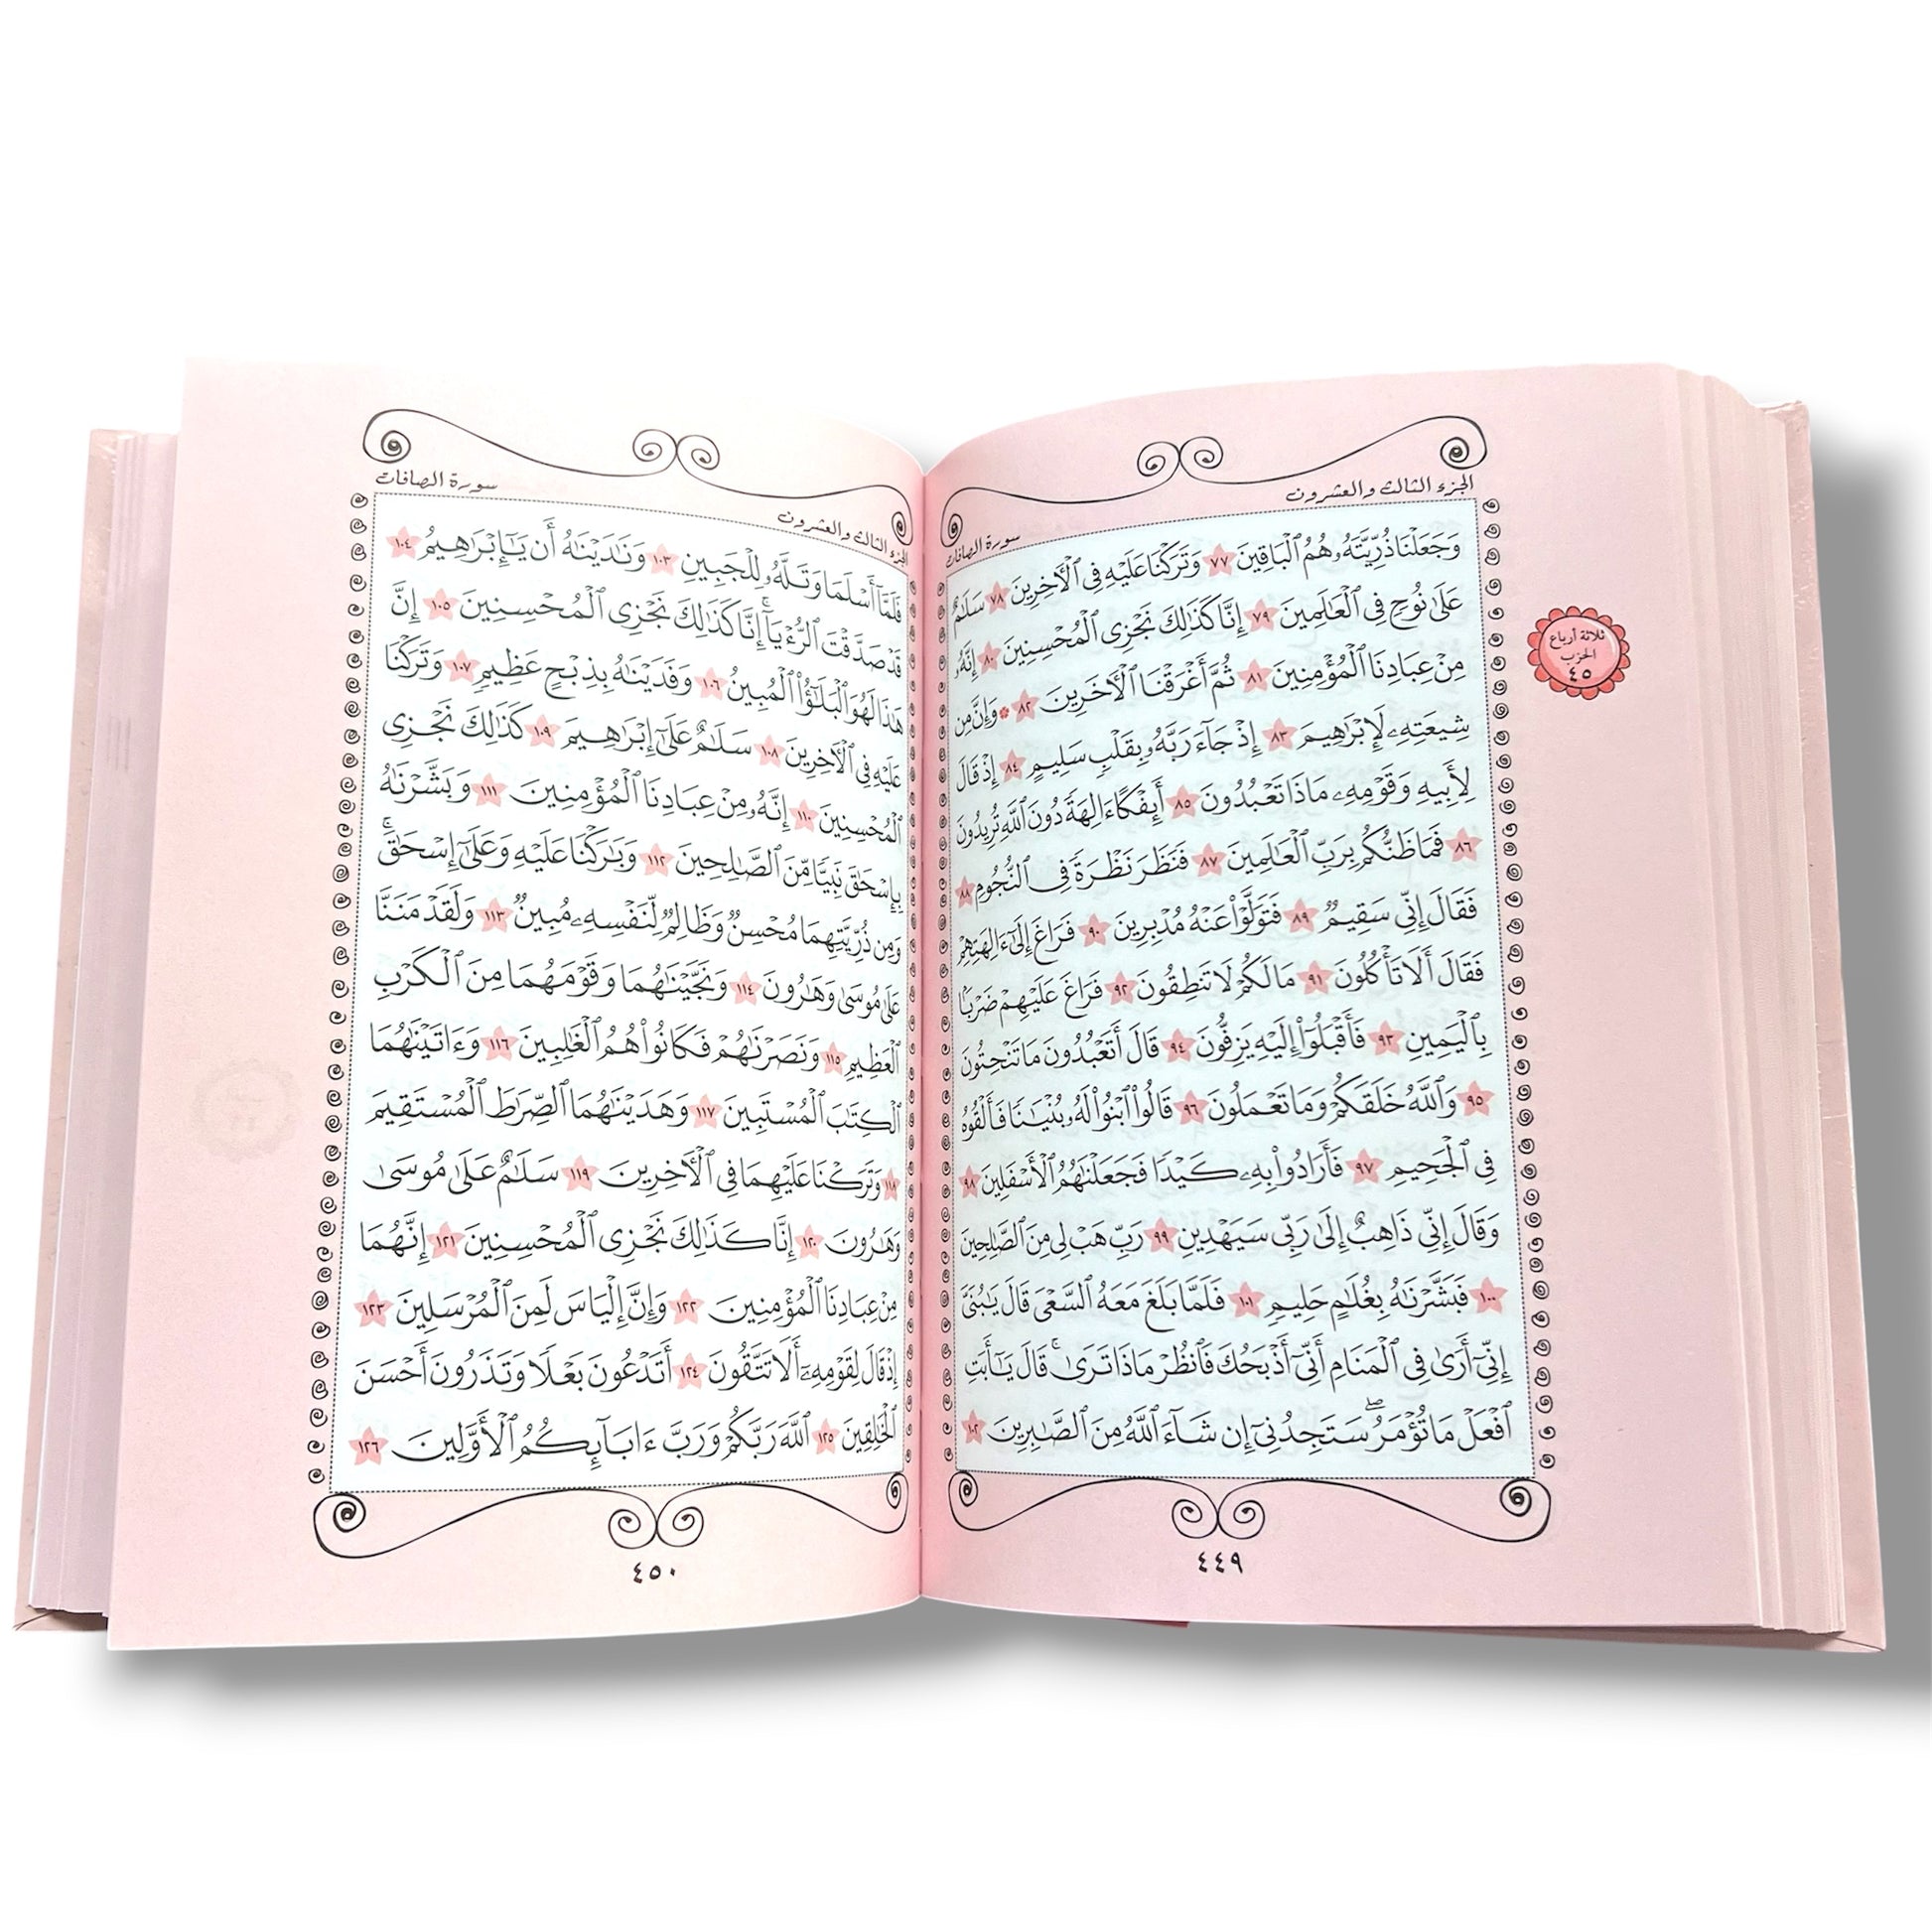 الجزء الثالث والعشرون
سورة الصافات
وَجَعَلْنَا ذُرِّيَّتَهُۥ هُمُ ٱلْبَاقِينَ ٧٧ وَتَرَكْنَا عَلَيْهِ فِى ٱلْأَخِرِينَ ٧٨ سَلَٰمٌ
عَلَىٰ نُوحٍ فِى ٱلْعَٰلَمِينَ ٧٩ إِنَّا كَذَٰلِكَ نَجْزِى ٱلْمُحْسِنِينَ ٨٠ إِنَّهُۥ
مِنْ عِبَادِنَا ٱلْمُؤْمِنِينَ ٨١ ثُمَّ أَغْرَقْنَا ٱلْأَخَرِينَ ٨٢ وَإِنَّ مِن
شِيعَتِهِۦ لَإِبْرَٰهِيمَ ٨٣ إِذْ جَآءَ رَبَّهُۥ بِقَلْبٍ سَلِيمٍ ٨٤ إِذْ قَالَ
لِأَبِيهِ وَقَوْمِهِۦ مَاذَا تَعْبُدُونَ ٨٥ أَئِفْكًا ءَالِهَةً دُونَ ٱللَّهِ تُرِيدُونَ
٨٦ فَمَا ظَنُّكُم بِرَبِّ ٱلْعَٰلَمِينَ ٨٧ فَنَظَرَ نَظْرَةً فِى ٱلنُّجُومِ ٨٨
فَقَالَ إِنِّى سَقِيمٌ ٨٩ فَتَوَلَّوْا۟ عَنْهُ مُدْبِرِينَ ٩٠ فَرَاغَ إِلَىٰٓ ءَالِهَتِهِمْ
فَقَالَ أَلَا تَأْكُلُونَ ٩١ مَا لَكُمْ لَا تَنطِقُونَ ٩٢ فَرَاغَ عَلَيْهِمْ ضَرْبًۢا
بِٱلْيَمِينِ ٩٣ فَأَقْبَلُوٓا۟ إِلَيْهِ يَزِفُّونَ ٩٤ قَالَ أَتَعْبُدُونَ مَا تَنْحِتُونَ
٩٥ وَٱللَّهُ خَلَقَكُمْ وَمَا تَعْمَلُونَ ٩٦ قَالُوا۟ ٱبْنُوا۟ لَهُۥ بُنْيَٰنًا فَأَلْقُوهُ
فِى ٱلْجَحِيمِ ٩٧ فَأَرَادُوا۟ بِهِۦ كَيْدًا فَجَعَلْنَٰهُمُ ٱلْأَسْفَلِينَ ٩٨
وَقَالَ إِنِّى ذَاهِبٌ إِلَىٰ رَبِّى سَيَهْدِينِ ٩٩ رَبِّ هَبْ لِى مِنَ ٱلصَّٰلِحِينَ
١٠٠ فَبَشَّرْنَٰهُ بِغُلَٰمٍ حَلِيمٍ ١٠١ فَلَمَّا بَلَغَ مَعَهُ ٱلسَّعْىَ قَالَ يَٰبُنَىَّ
إِنِّىٓ أَرَىٰ فِى ٱلْمَنَامِ أَنِّىٓ أَذْبَحُكَ فَٱنظُرْ مَاذَا تَرَىٰ ۚ قَالَ يَٰٓأَبَتِ
ٱفْعَلْ مَا تُؤْمَرُ ۖ سَتَجِدُنِىٓ إِن شَآءَ ٱللَّهُ مِنَ ٱلصَّٰبِرِينَ ١٠٢
٤٤٩
ثلاثة أرباع
الحزب
٤٥
سورة الصافات
الجزء الثالث والعشرون
فَلَمَّآ أَسْلَمَا وَتَلَّهُۥ لِلْجَبِينِ ١٠٣ وَنَٰدَيْنَٰهُ أَن يَٰٓإِبْرَٰهِيمُ ١٠٤
قَدْ صَدَّقْتَ ٱلرُّءْيَآ ۚ إِنَّا كَذَٰلِكَ نَجْزِى ٱلْمُحْسِنِينَ ١٠٥ إِنَّ
هَٰذَا لَهُوَ ٱلْبَلَٰٓؤُا۟ ٱلْمُبِينُ ١٠٦ وَفَدَيْنَٰهُ بِذِبْحٍ عَظِيمٍ ١٠٧ وَتَرَكْنَا
عَلَيْهِ فِى ٱلْأَخِرِينَ ١٠٨ سَلَٰمٌ عَلَىٰٓ إِبْرَٰهِيمَ ١٠٩ كَذَٰلِكَ نَجْزِى
ٱلْمُحْسِنِينَ ١١٠ إِنَّهُۥ مِنْ عِبَادِنَا ٱلْمُؤْمِنِينَ ١١١ وَبَشَّرْنَٰهُ
بِإِسْحَٰقَ نَبِيًّا مِّنَ ٱلصَّٰلِحِينَ ١١٢ وَبَٰرَكْنَا عَلَيْهِ وَعَلَىٰٓ إِسْحَٰقَ ۚ
وَمِن ذُرِّيَّتِهِمَا مُحْسِنٌ وَظَالِمٌ لِّنَفْسِهِۦ مُبِينٌ ١١٣ وَلَقَدْ مَنَنَّا
عَلَىٰ مُوسَىٰ وَهَٰرُونَ ١١٤ وَنَجَّيْنَٰهُمَا وَقَوْمَهُمَا مِنَ ٱلْكَرْبِ
ٱلْعَظِيمِ ١١٥ وَنَصَرْنَٰهُمْ فَكَانُوا۟ هُمُ ٱلْغَٰلِبِينَ ١١٦ وَءَاتَيْنَٰهُمَا
ٱلْكِتَٰبَ ٱلْمُسْتَبِينَ ١١٧ وَهَدَيْنَٰهُمَا ٱلصِّرَٰطَ ٱلْمُسْتَقِيمَ
١١٨ وَتَرَكْنَا عَلَيْهِمَا فِى ٱلْأَخِرِينَ ١١٩ سَلَٰمٌ عَلَىٰ مُوسَىٰ
وَهَٰرُونَ ١٢٠ إِنَّا كَذَٰلِكَ نَجْزِى ٱلْمُحْسِنِينَ ١٢١ إِنَّهُمَا
مِنْ عِبَادِنَا ٱلْمُؤْمِنِينَ ١٢٢ وَإِنَّ إِلْيَاسَ لَمِنَ ٱلْمُرْسَلِينَ ١٢٣
إِذْ قَالَ لِقَوْمِهِۦٓ أَلَا تَتَّقُونَ ١٢٤ أَتَدْعُونَ بَعْلًا وَتَذَرُونَ أَحْسَنَ
ٱلْخَٰلِقِينَ ١٢٥ ٱللَّهَ رَبَّكُمْ وَرَبَّ ءَابَآئِكُمُ ٱلْأَوَّلِينَ ١٢٦
٤٥٠